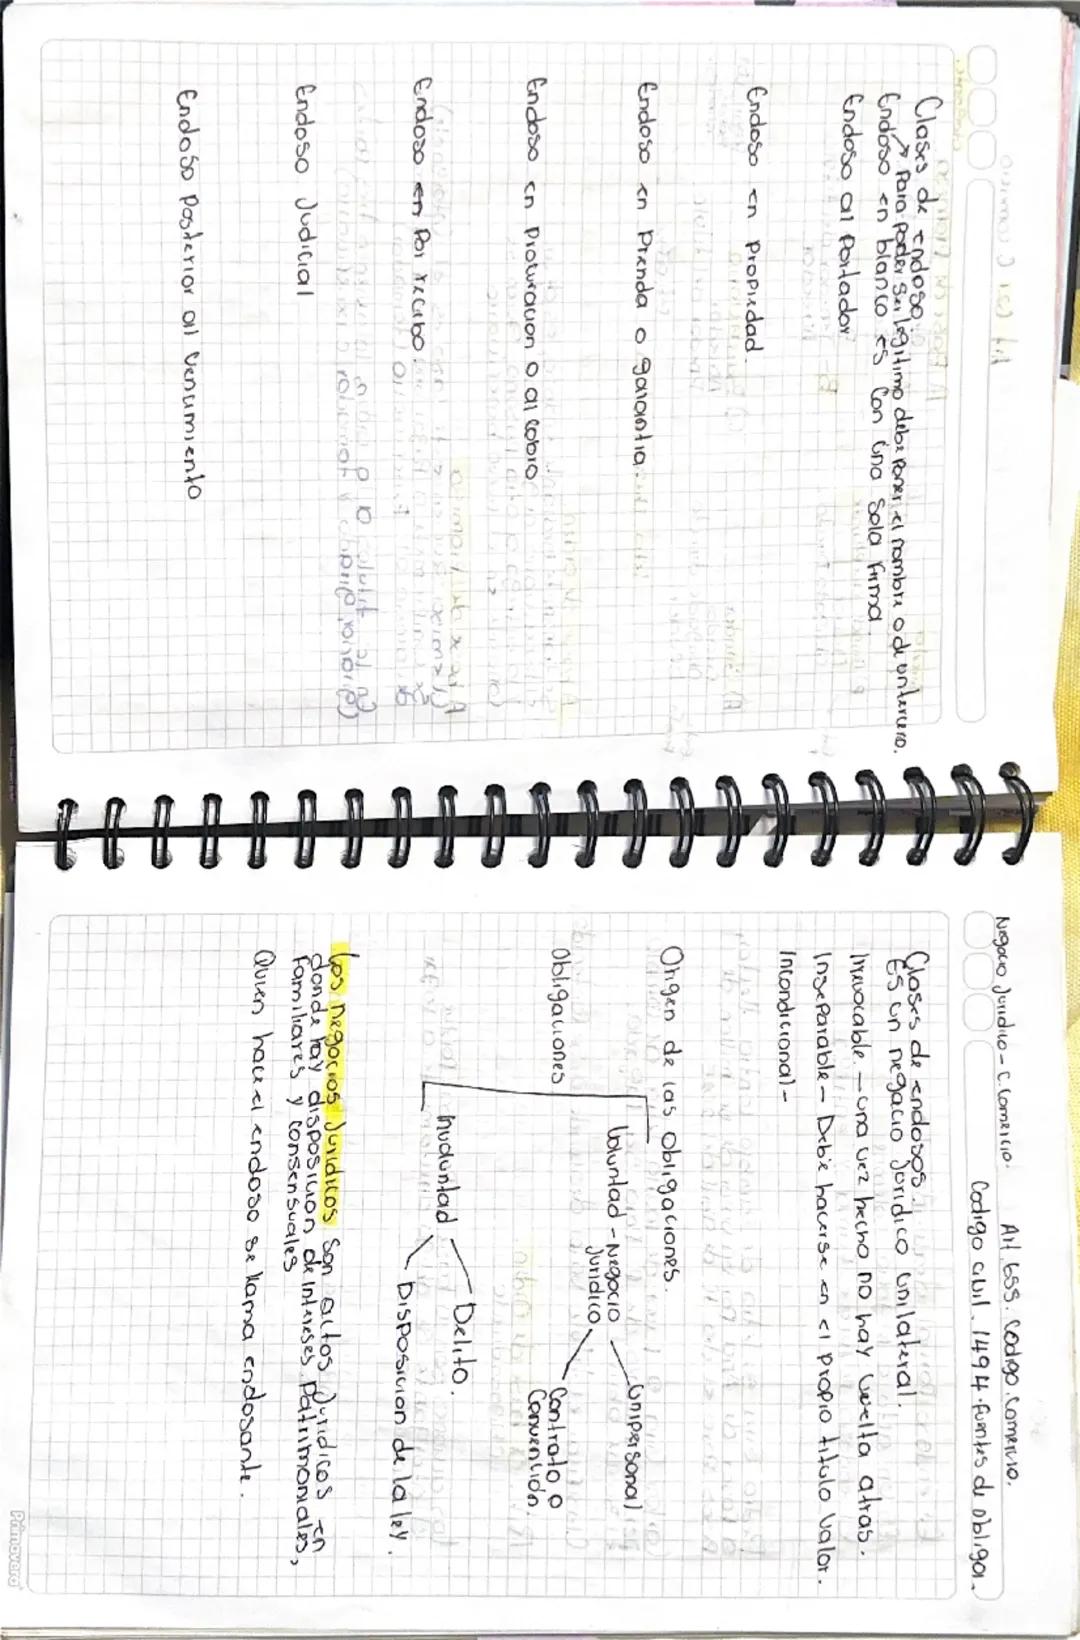 Clases de endoso.
↗ Para poder ser legitimo debe poner el nombre o de un tercero.
Endoso en blanco es con una sola firma.
Endoso al Portador
Endoso en propiedad.
Endoso en Prenda o garantia.
Endoso en Procuracion o al cobro
Endoso en Por recibo.
Endoso Judicial
Endoso Posterior al vencimiento
Negocio Juridico - C. Comercio. Art. 655. Codigo. Comercio.
Codigo civil. 1494. fuentes de obliga.
Clases de endosos.
Es un negocio juridico unilateral.
Irrevocable. - una vez hecho no hay vuelta atras.
Inseparable - Debe hacerse en el propio titulo valor.
Incondicional -
Origen de las obligaciones.
Voluntad - Negocio Juridico
Unipersonal
Contrato o Convención.
Obligaciones
Involuntad
Delito.
Disposicion de la ley.
Los negocios Juridicos son actos Juridicos en
donde hay disposicion de Intereses Patrimoniales,
Familiares y consensuales
Quien hace el endoso se llama endosante.
Primavera